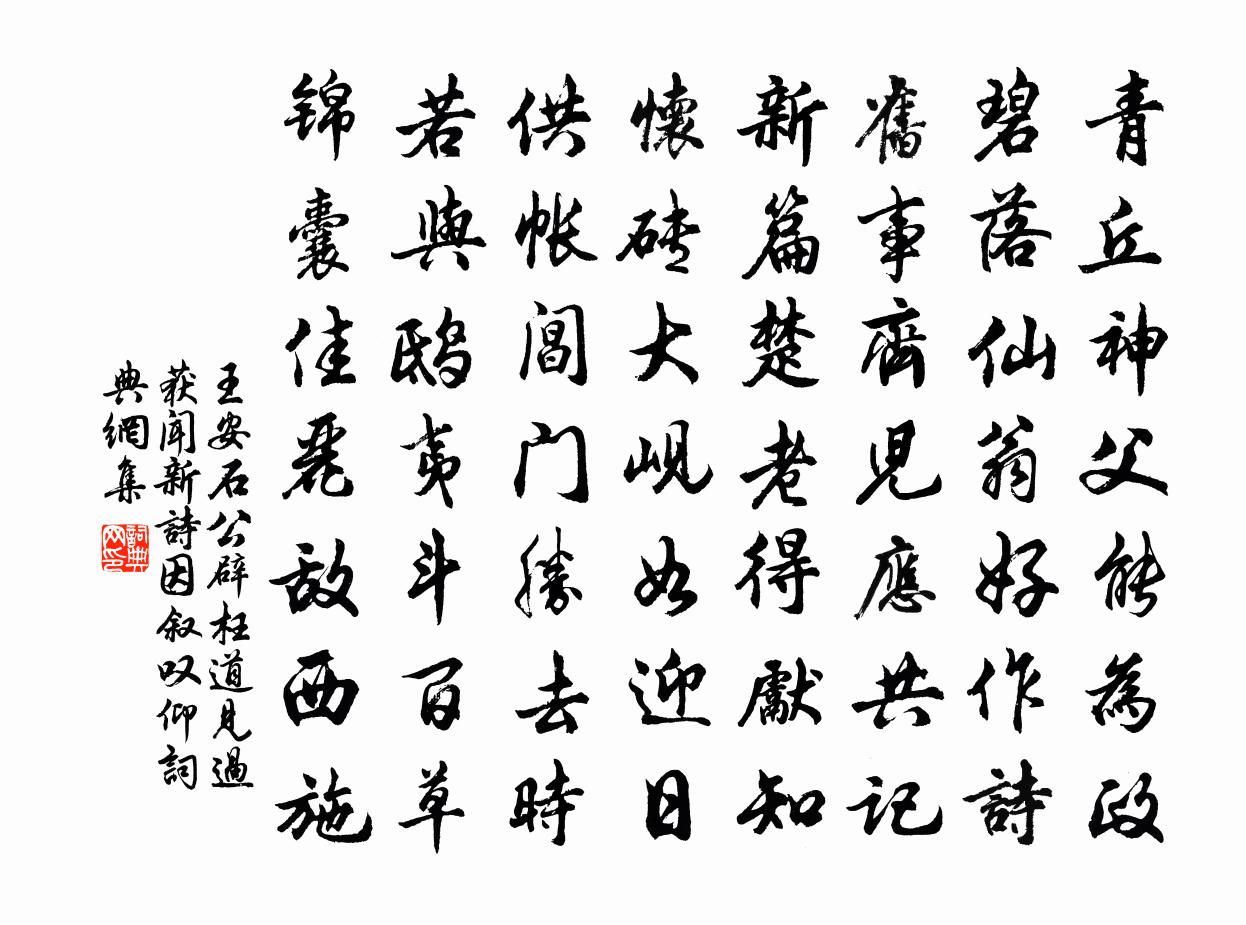 青丘神父能為政
碧落仙翁好作詩
舊事齊兒應共記
新篇楚老得獻知
懷磚大峴如迎日
供帳閶門勝去時
若與鴟夷斗百草
锦囊佳麗敌西施
王安石公辟枉道見過
获闻新詩因叙叹仰詞
典網集
詞典
网印